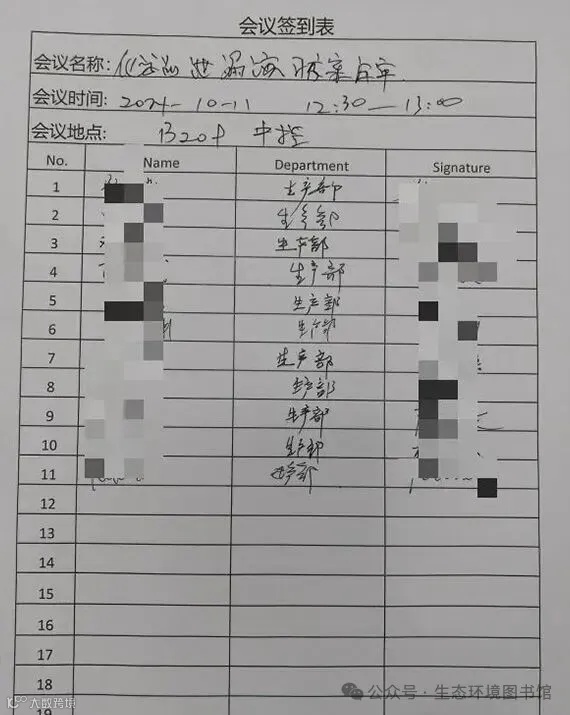 会议签到表
会议名称: 化学品泄漏演
会议时间: 2024-10-11 12:30—13:00
会议地点: B204 中控
No. Name Department Signature
1 生产部
2 生产部
3 生产部
4 生产部
5 生产部
6 生产部
7 生产部
8 生产部
9 生产部
10 生产部
11 生产部
12
13
14
15
16
17
18
19
公众号·生态环境图书馆
大数跨境